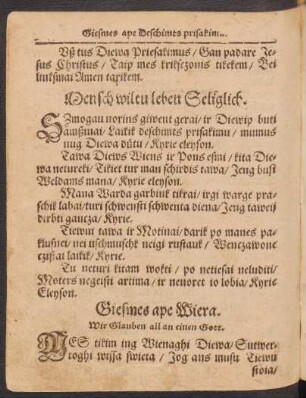 Giesmes ape Deschimts prisakim...
Uß tus Diewa Priesakimus / Gan padare Je-
sus Christus / Taip mes krikszczonis tikekem / Bei
linksmai Amen tarikem.
Mensch wiltu leben Seliglich.
SZmogau norins giwent gerai / ir Diewip buti
amßinai / Laikik deschimts prisakimu / mumus
nug Diewa dūtu / Kyrie eleyson.
Tawa Diews Wiens ir Pons esmi / kita Die-
wa netureki / Tikiet tur man schirdis tawa / Jeng busi
Weldams mana / Kyrie eleyson.
Mana Warda garbink tikrai / irgi warge pra-
schik labai / turi schwensti schwenta diena / Jeng tawen
dirbti gaucza / Kyrie.
Tiewui tawa ir Motinai / darik po manes pa-
klusnei / nei uschmuschk neigi rustauk / Wenczawone
czistai laikik / Kyrie
Tu neturi kitam wokti / po netiesai neluditi /
Moters negeisti artima / ir nenoret io lobia / Kyrie
Eleyson.
Giesmes ape Wiera.
Wir Glauben all an einen Gott.
MES tikim ing Wienaghi Diewa / Sutwer-
toghi wissa swieta / Jog ans musu Tiewu
stoia /